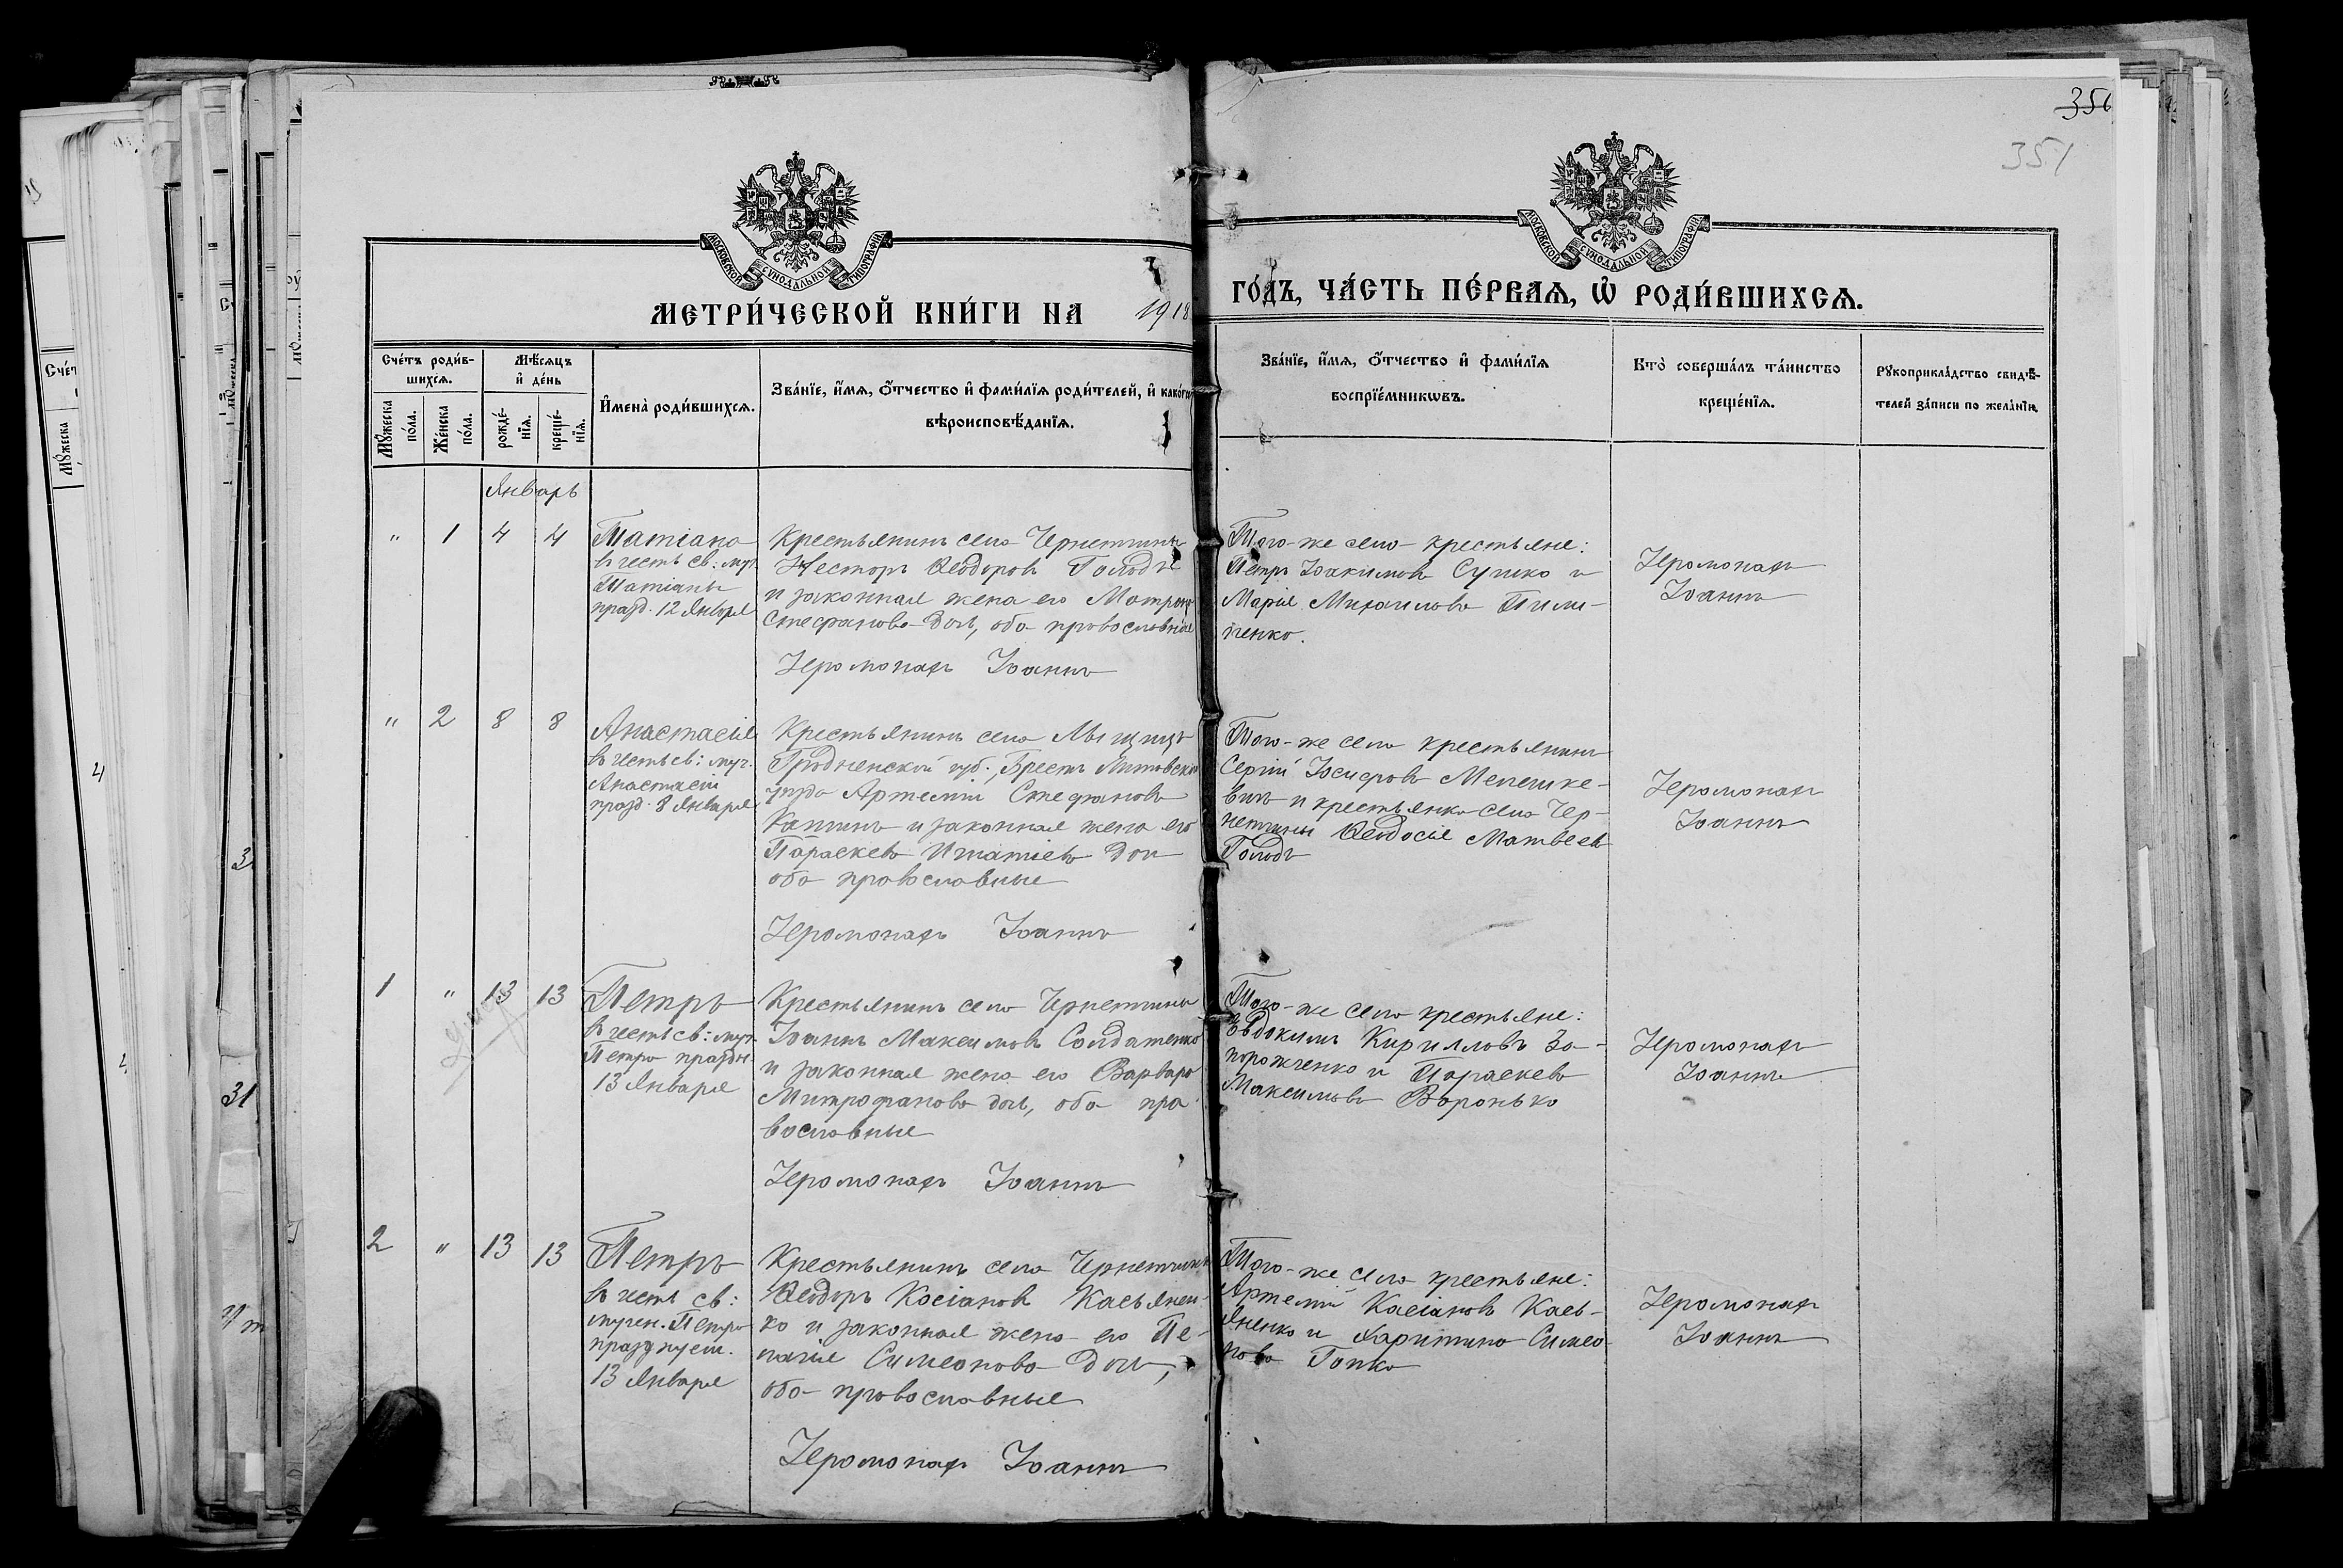 356
351
МОСКОВСКОЙ СУНОДАЛЬНОЙ ТИПОГРАФІИ
МОСКОВСКОЙ СУНОДАЛЬНОЙ ТИПОГРАФІИ
МЕТРИ́ЧЕСКОЙ КНИ́ГИ НА 1918
ГО́ДЪ, ЧА́СТЬ ПЕ́РВАЯ, Ѡ РОДИ́ВШИХСЯ.
Сче́тъ роди́в-
шихся.
Мѣ́сяцъ
и҆ де́нь
Мꙋ́жеска
по́ла.
Же́нска
по́ла.
рожде́-
нїя.
креще́-
нїя.
И҆мена̀ роди́вшихся.
Зва́нїе, и҆́мя, ѻ҆́тчество и҆ фами́лїя роди́телей, и҆ како́гѡ
вѣроисповѣ́данїя.
Зва́нїе, и҆́мя, ѻ҆́тчество и҆ фами́лїя
воспрїе́мникѡвъ.
Кто̀ соверша́лъ та́инство
креще́нїя.
Рꙋкоприкла́дство свидѣ́-
телей за́писи по жела́нїю.
Январь
" 1 4 4
Татіана
въ честь св: муч.
Татіаны
празд. 12 Января
Крестьянинъ села Чернетчины
Несторъ Ѳеодоровъ Голодъ
и законная жена его Матрона
Стефанова доч, оба православные
Іеромонахъ Іоаннъ
Того-же села крестьяне:
Петръ Іоакимовъ Сушко и
Марія Михаилова Пили-
пенко.
Іеромонахъ
Іоаннъ
" 2 8 8
Анастасія
въ честь св: муч.
Анастасіи
празд. 8 Января
Крестьянинъ села Мыщицъ
Гродненской губ., Брестъ Литовскаго
уезда Артемій Стефановъ
и законная жена его
Параскева Игнатіева доч
оба православные
Іеромонахъ Іоаннъ
Того-же села крестьянинъ
Сергій Іосифовъ Мелешке-
вичъ и крестьянка села Чер-
нетчины Ѳеодосія Матвеева
Голодъ
Іеромонахъ
Іоаннъ
1 " 13 13
Петръ
въ честь св: муч.
Петра праздн.
13 Января
Крестьянинъ села Чернетчины
Іоаннъ Максимовъ Солдатенко
и законная жена его Варвара
Митрофанова доч, оба пра-
вославные
Іеромонахъ Іоаннъ
Того-же села крестьяне:
Евдокимъ Кирилловъ За-
порожченко и Параскева
Максимова Воронько
Іеромонахъ
Іоаннъ
2 " 13 13
Петръ
въ честь св:
мучен. Петра
празднуем.
13 Января
Крестьянинъ села Чернетчины
Ѳеодоръ Касіановъ Касьянен-
ко и законная жена его Пе-
лагія Симеонова доч,
оба православные
Іеромонахъ Іоаннъ
Того-же села крестьяне:
Артемій Касіановъ Кась-
яненко и Харитина Симео-
нова Гопко
Іеромонахъ
Іоаннъ